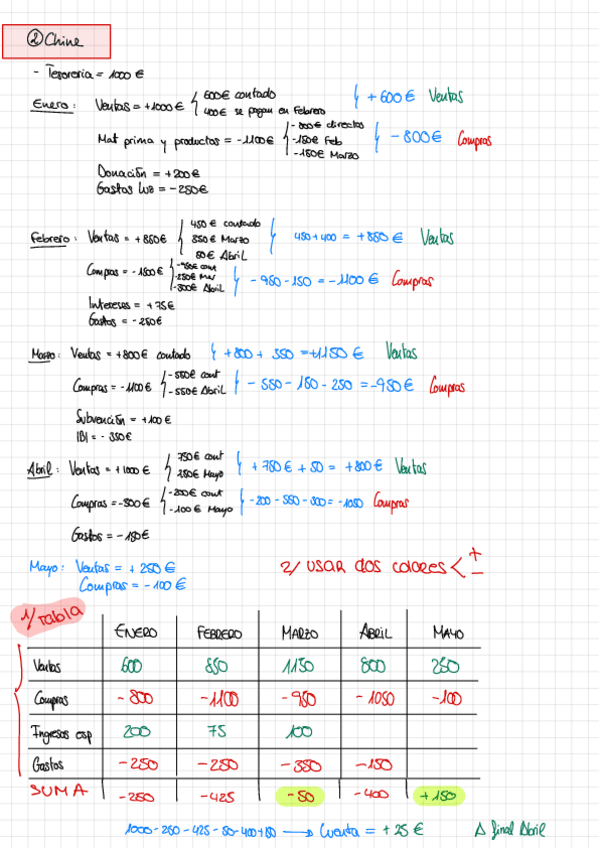 ② Chine
- Tesorería = 1000 €
Enero: Ventas = +1000 € 600 € contado + 600 € Ventas
400 € se pagan en Febrero
Mat prima y productos = -1100 € - 800 € directos - 800 € Compras
- 150 € Feb
- 150 € Marzo
Donación = +200 €
Gastos luz = - 250 €
Febrero: Ventas = + 850 € 450 € contado 450 + 400 = + 850 € Ventas
350 € Marzo
50 € Abril
Compras = - 1500 € - 950 € cont - 950 - 150 = - 1100 € Compras
- 250 € Mar
- 300 € Abril
Intereses = + 75 €
Gastos = - 250 €
Marzo: Ventas = +800 € contado + 800 + 350 = +1150 € Ventas
Compras = - 1100 € - 550 € cont - 550 - 150 - 250 = - 950 € Compras
- 550 € Abril
Subvención = +100 €
IBI = - 350 €
Abril: Ventas = + 1000 € 750 € cont + 750 € + 50 = + 800 € Ventas
250 € Mayo
Compras = - 300 € - 200 € cont - 200 - 550 - 300 = - 1050 Compras
- 100 € Mayo
Gastos = - 150 €
Mayo: Ventas = + 250 €
Compras = - 100 €
2/ USAR DOS COLORES < + -
1/ Tabla
ENERO FEBRERO MARZO ABRIL MAYO
Ventas 600 850 1150 800 250
Compras - 800 - 1100 - 950 - 1050 - 100
Ingresos esp 200 75 100
Gastos - 250 - 250 - 350 - 150
SUMA - 250 - 425 - 50 - 400 + 150
1000 - 250 - 425 - 50 - 400 + 150 → Cuenta = + 25 € Δ final Abril